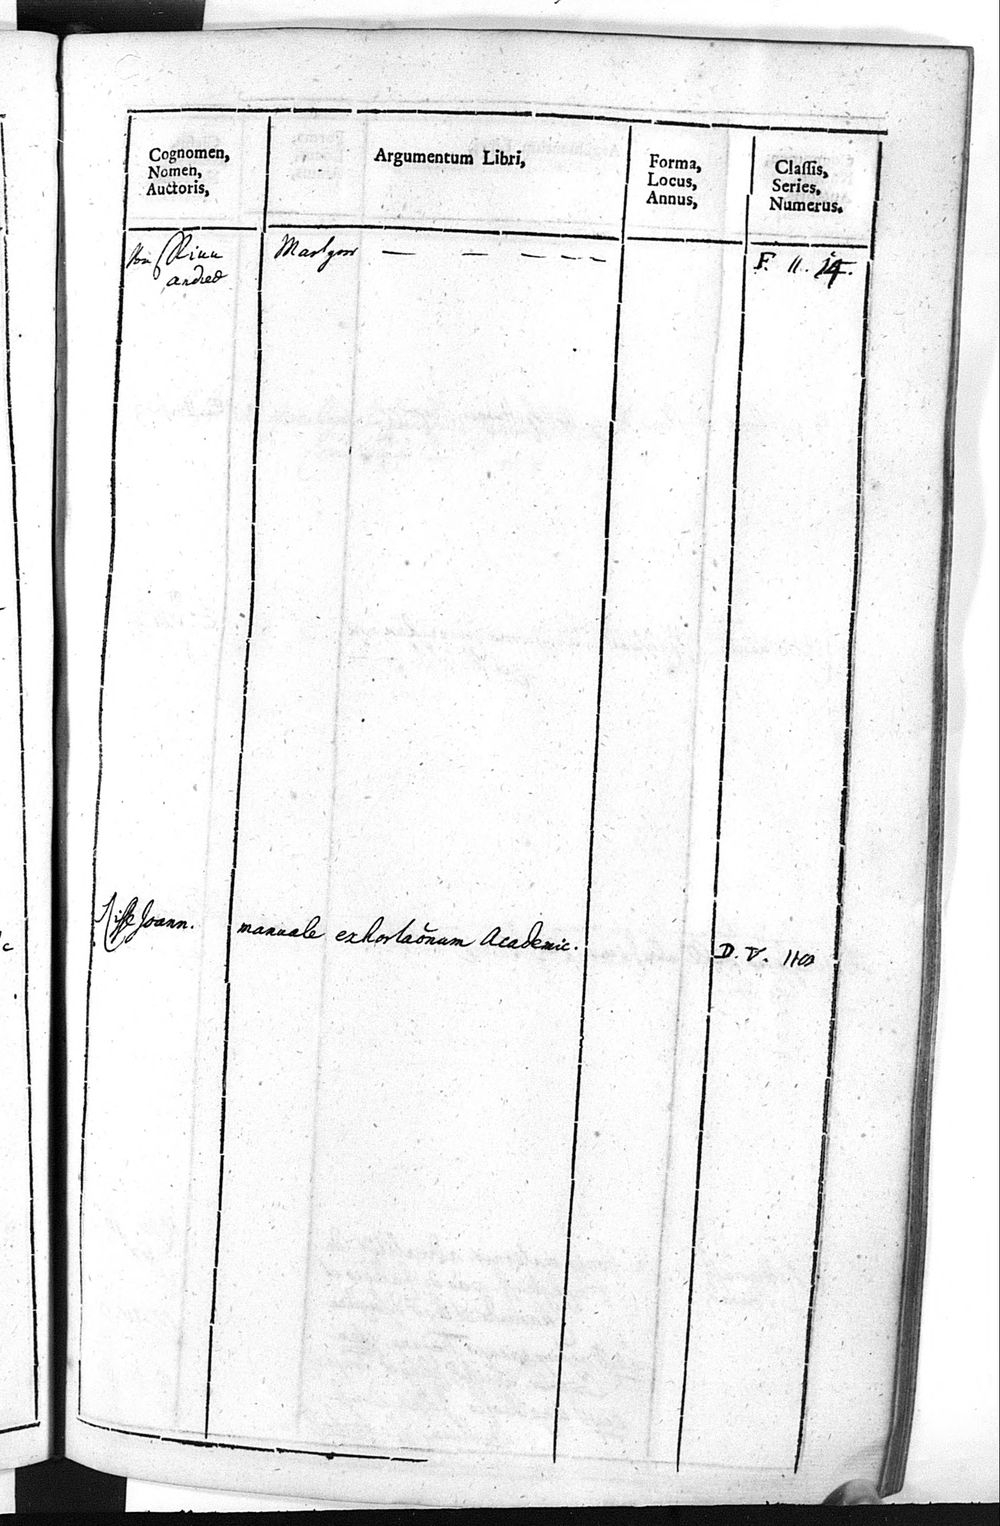 Cognomen,
Nomen,
Auctoris,
Argumentum Libri,
Forma,
Locus,
Annus,
Classis,
Series,
Numerus.
Von Rinn
andreas
F. 11. 14.
Joann. manuale exhortaōnum Academic. D. V. 110